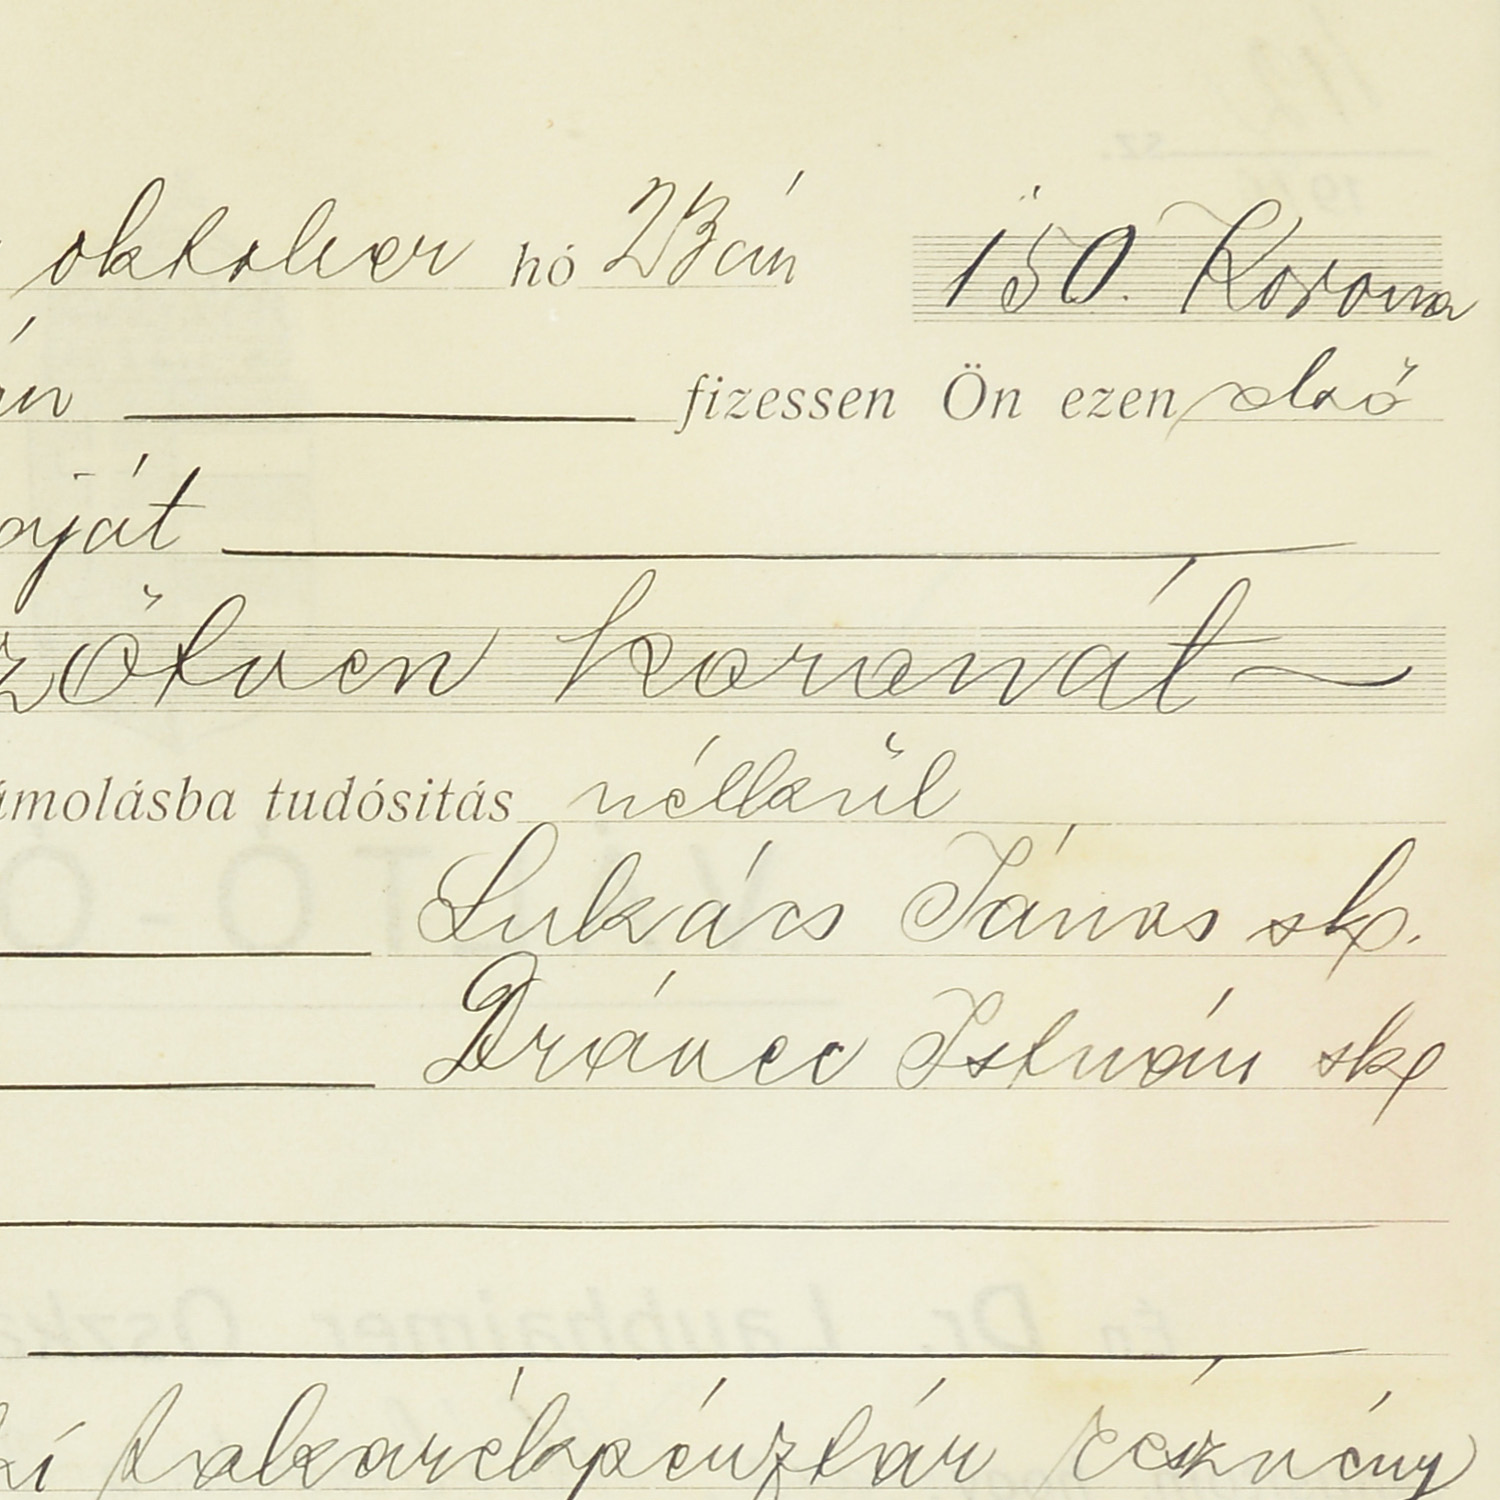 oktober hó 23 án 150. Korona
án fizessen Ön ezen első
oját
zötven koronát
ámolásba tudósitás nélkül
Lukács János sk.
István sk
ki takarékpénztár részvény